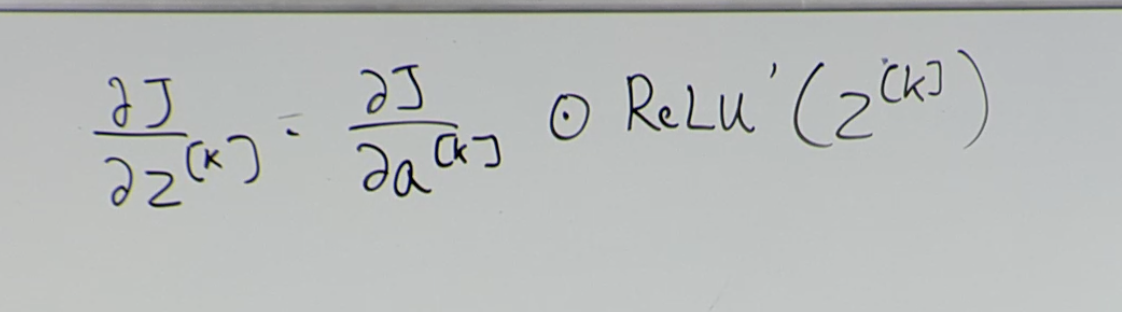 ∂J/∂z^[k] = ∂J/∂a^[k] ⊙ ReLU'(z^[k])